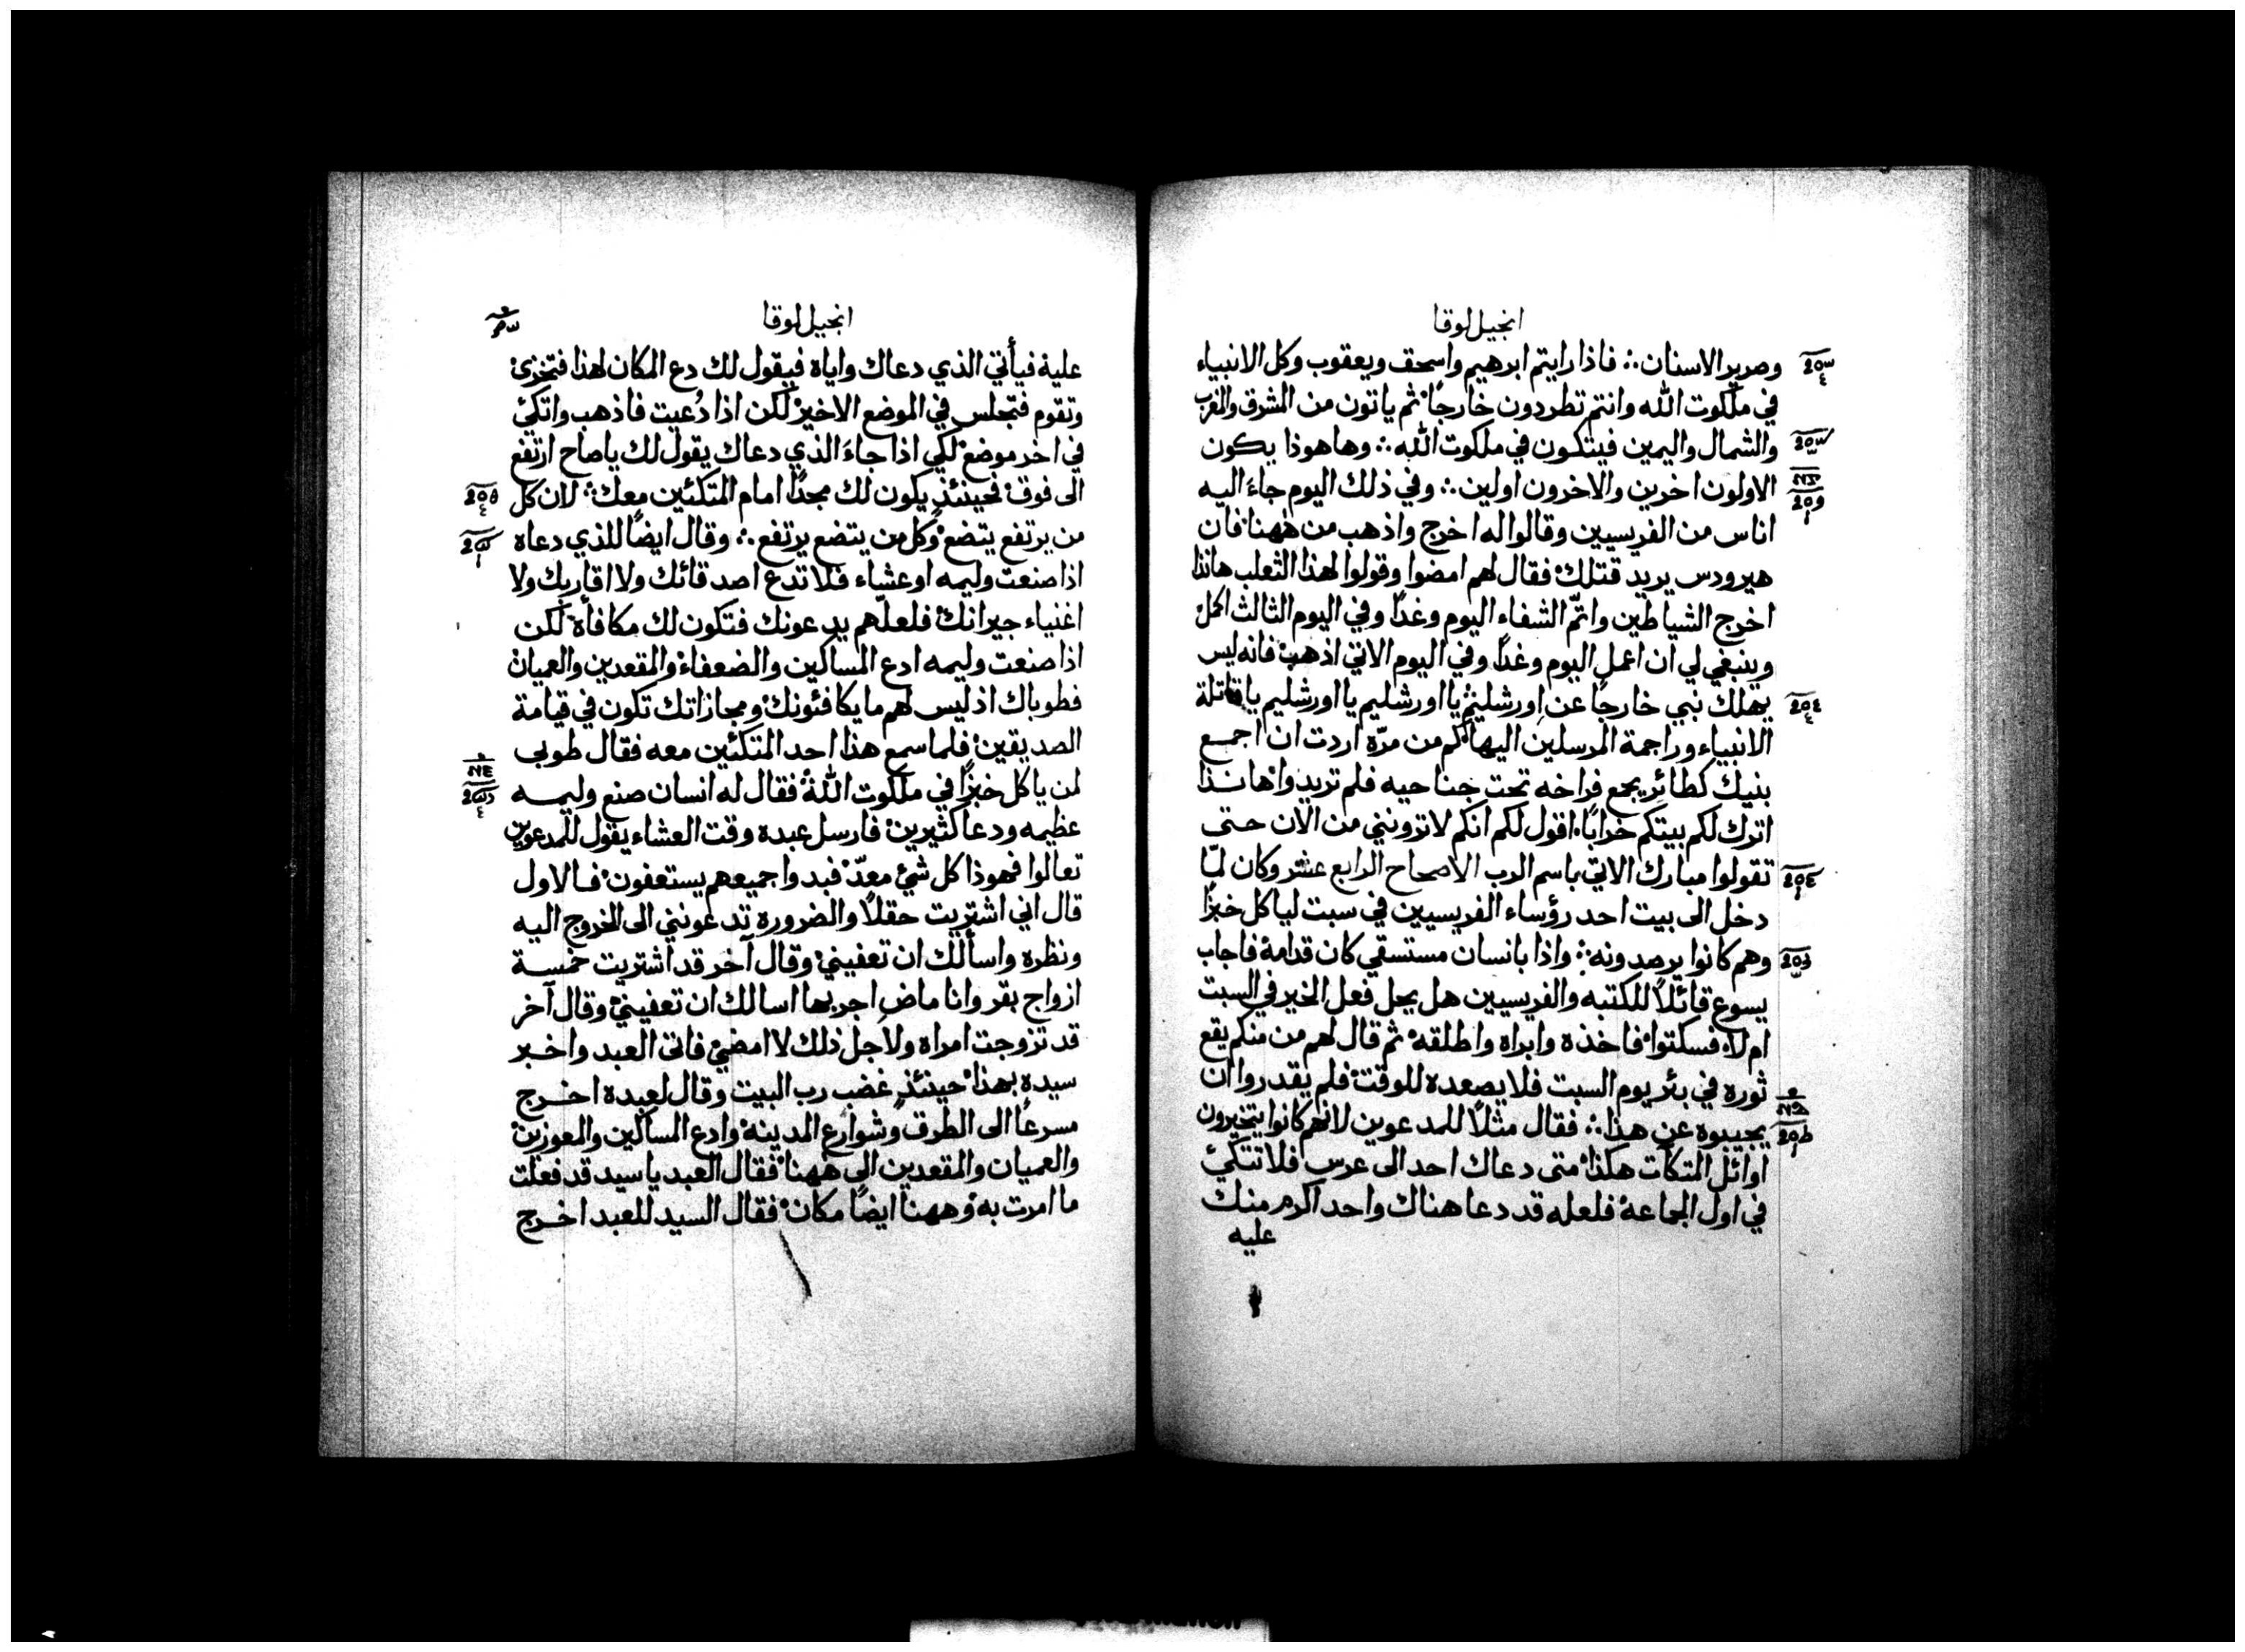 انجيل لوقا
وصرير الاسنان فاذا رايتم ابرهيم واسحق ويعقوب وكل الانبياء
في ملكوت الله وانتم تطردون خارجًا ثم ياتون من المشرق والمغرب
والشمال واليمين فيتكون في ملكوت الله وها هوذا يكون
الاولون اخرين والاخرون اولين وفي ذلك اليوم جاءَ اليه
اناس من الفريسيين وقالوا له اخرج واذهب من ههنا فان
هيرودس يريد قتلك فقال لهم امضوا وقولوا لهذا الثعلب هانذا
اخرج الشياطين واتمّ الشفاء اليوم وغدًا وفي اليوم الثالث اكمل
وينبغي لي ان اعمل اليوم وغدًا وفي اليوم الاتي اذهب فانه ليس
يهلك نبي خارجًا عن اورشليم يا اورشليم يا اورشليم يا قاتلة
الانبياء وراجمة المرسلين اليها كم من مرّه اردت ان اجمع
بنيك كطائر يجمع فراخه تحت جناحيه فلم تريدوا هانذا
اترك لكم بيتكم خرابًا اقول لكم انكم لا ترونني من الان حتى
تقولوا مبارك الاتي باسم الرب الاصحاح الرابع عشر وكان لمّا
دخل الى بيت احد رؤساء الفريسيين في سبت لياكل خبزًا
وهم كانوا يرصدونه واذا بانسان مستسقي كان قدامه فاجاب
يسوع قائلًا للكتبه والفريسيين هل يحل فعل الخير في السبت
ام لا فسكتوا فاخذه وابراه واطلقه ثم قال لهم من منكم يقع
ثوره في بئر يوم السبت فلا يصعده للوقت فلم يقدروا ان
يجيبوه عن هذا فقال مثلًا للمدعوين لانهم كانوا يتخيرون
اوائل المتكآت هكذا متى دعاك احد الى عرس فلا تتكئ
في اول الجماعة فلعله قد دعا هناك واحد اكرم منك
عليه
انجيل لوقا
عليه فيأتي الذي دعاك واياه فيقول لك دع المكان لهذا فتخزى
وتقوم فتجلس في الموضع الاخير لكن اذا دُعيت فاذهب واتكئ
في اخر موضع لكي اذا جاءَ الذي دعاك يقول لك يا صاح ارتفع
الى فوق فحينئذٍ يكون لك مجدًا امام المتكئين معك لان كل
من يرتفع يتضع وكل من يتضع يرتفع وقال ايضًا للذي دعاه
اذا صنعت وليمه او عشاء فلا تدع اصدقائك ولا اقاربك ولا
اغنياء جيرانك فلعلّهم يدعونك فتكون لك مكافأة لكن
اذا صنعت وليمه ادع المساكين والضعفاء والمقعدين والعميان
فطوباك اذ ليس لهم ما يكافئونك ومجازاتك تكون في قيامة
الصديقين فلما سمع هذا احد المتكئين معه فقال طوبى
لمن ياكل خبزًا في ملكوت الله فقال له انسان صنع وليمه
عظيمه ودعا كثيرين فارسل عبده وقت العشاء يقول للمدعوين
تعالوا فهوذا كل شئ معدّ فبدوا جميعهم يستعفون فالاول
قال اني اشتريت حقلًا والضروره تدعونني الى الخروج اليه
ونظره واسألك ان تعفيني وقال آخر قد اشتريت خمسة
ازواج بقر وانا ماضٍ اجربها اسالك ان تعفيني وقال آخر
قد تزوجت امراه ولاجل ذلك لا امضي فاتى العبد واخبر
سيده بهذا حينئذٍ غضب رب البيت وقال لعبده اخرج
مسرعًا الى الطرق وشوارع المدينه وادع المساكين والمعوزين
والعميان والمقعدين الى ههنا فقال العبد يا سيد قد فعلت
ما امرت به وههنا ايضًا مكان فقال السيد للعبد اخرج